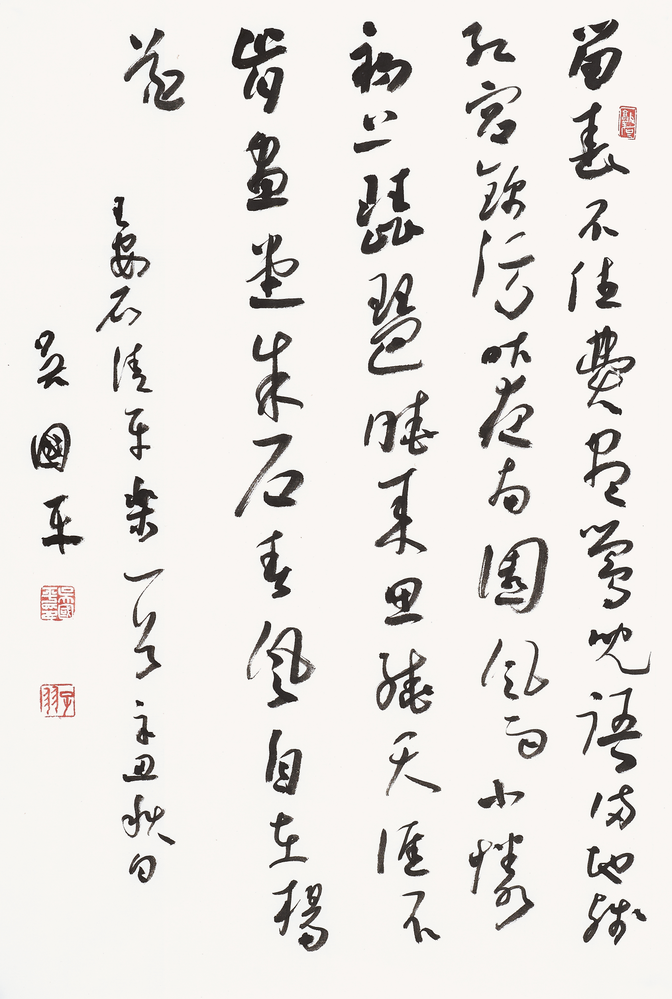 留春不住費盡鶯兒語滿地殘
紅宮錦污昨夜南園風雨小憐
初上琵琶曉來思繞天涯不
肯畫堂朱戶春風自在楊
花
王安石清平樂一首辛丑秋日
吳國平
子羽